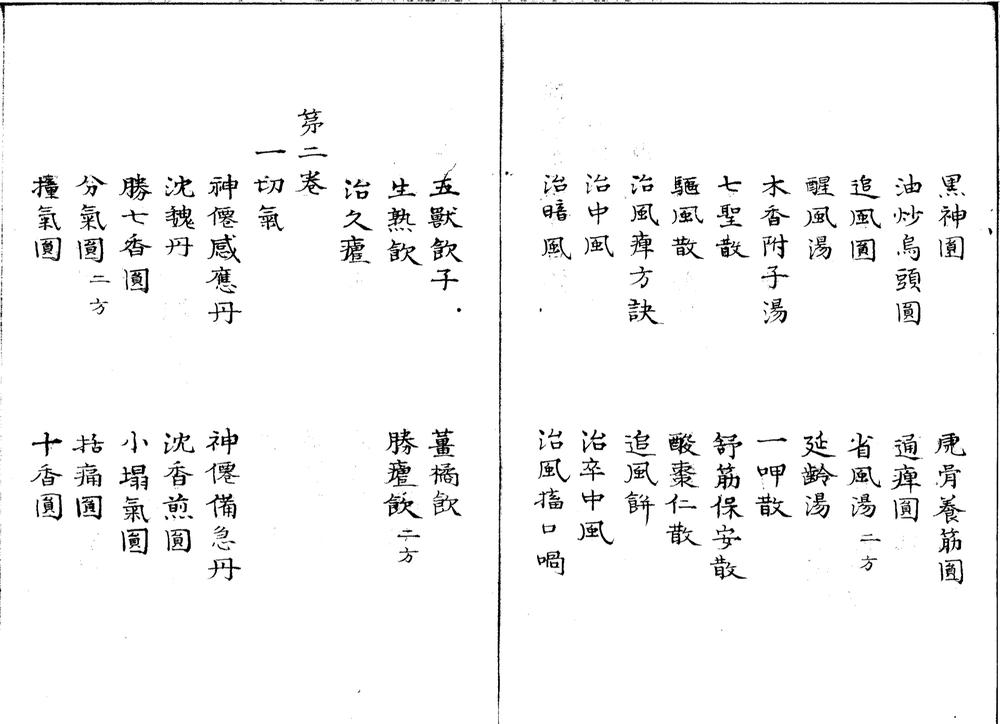 黒神圓　虎骨養筋圓
油炒烏頭圓　通痺圓
追風圓　省風湯二方
醒風湯　延齡湯
木香附子湯　一呷散
七聖散　舒筋保安散
驅風散　酸棗仁散
治風痺方訣　追風餅
治中風　治卒中風
治暗風　治風搐口喎
五獸飲子　薑橘飲
生熟飲　勝瘧飲二方
治久瘧
苐二卷
一切氣
神僊感應丹　神僊備急丹
沈魏丹　沈香煎圓
勝七香圓　小塌氣圓
分氣圓二方　括痛圓
撞氣圓　十香圓